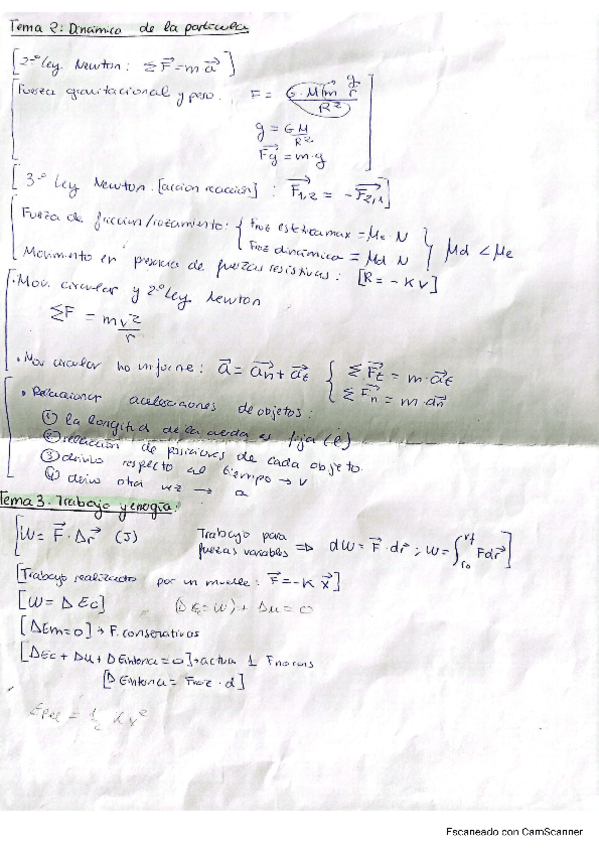 Tema 2: Dinámica de la partícula
[2º ley Newton: Σ F⃗ = m a⃗]
[Fuerza gravitacional y peso. F = G·M(m) g⃗ / R²
g = G M / R²
F⃗g = m·g]
[3º Ley Newton [acción reacción] : F⃗1,2 = -F⃗2,1]
[Fuerza de fricción/rozamiento: { Froz estática max = μe · N
Froz dinámica = μd · N } μd < μe
Movimiento en presencia de fuerzas resistivas: [R = - K v]
[• Mov. circular y 2º ley Newton
ΣF = m v² / r
• Mov circular no uniforme: a⃗ = a⃗n + a⃗t { Σ F⃗t = m · a⃗t
Σ F⃗n = m · a⃗n
[• Relacionar aceleraciones de objetos:
① la longitud de la cuerda es fija (l)
② relación de posiciones de cada objeto.
③ derivo respecto al tiempo → v
④ derivo otra vez → a
Tema 3. Trabajo y energía:
[W = F⃗ · Δr⃗ (J) Trabajo para fuerzas variables ⇒ dW = F⃗ · dr⃗ ; W = ∫ro rf F dr⃗]
[Trabajo realizado por un muelle: F⃗ = - K x⃗]
[W = Δ Ec] (ΔEc = W) + Δu = 0
[ΔEm = 0] → F. conservativas
[ΔEc + Δu + ΔEinterna = 0] → actua 1 F no cons
[Δ Einterna = Froz · d]
Epel = 1/2 K x²
Escaneado con CamScanner